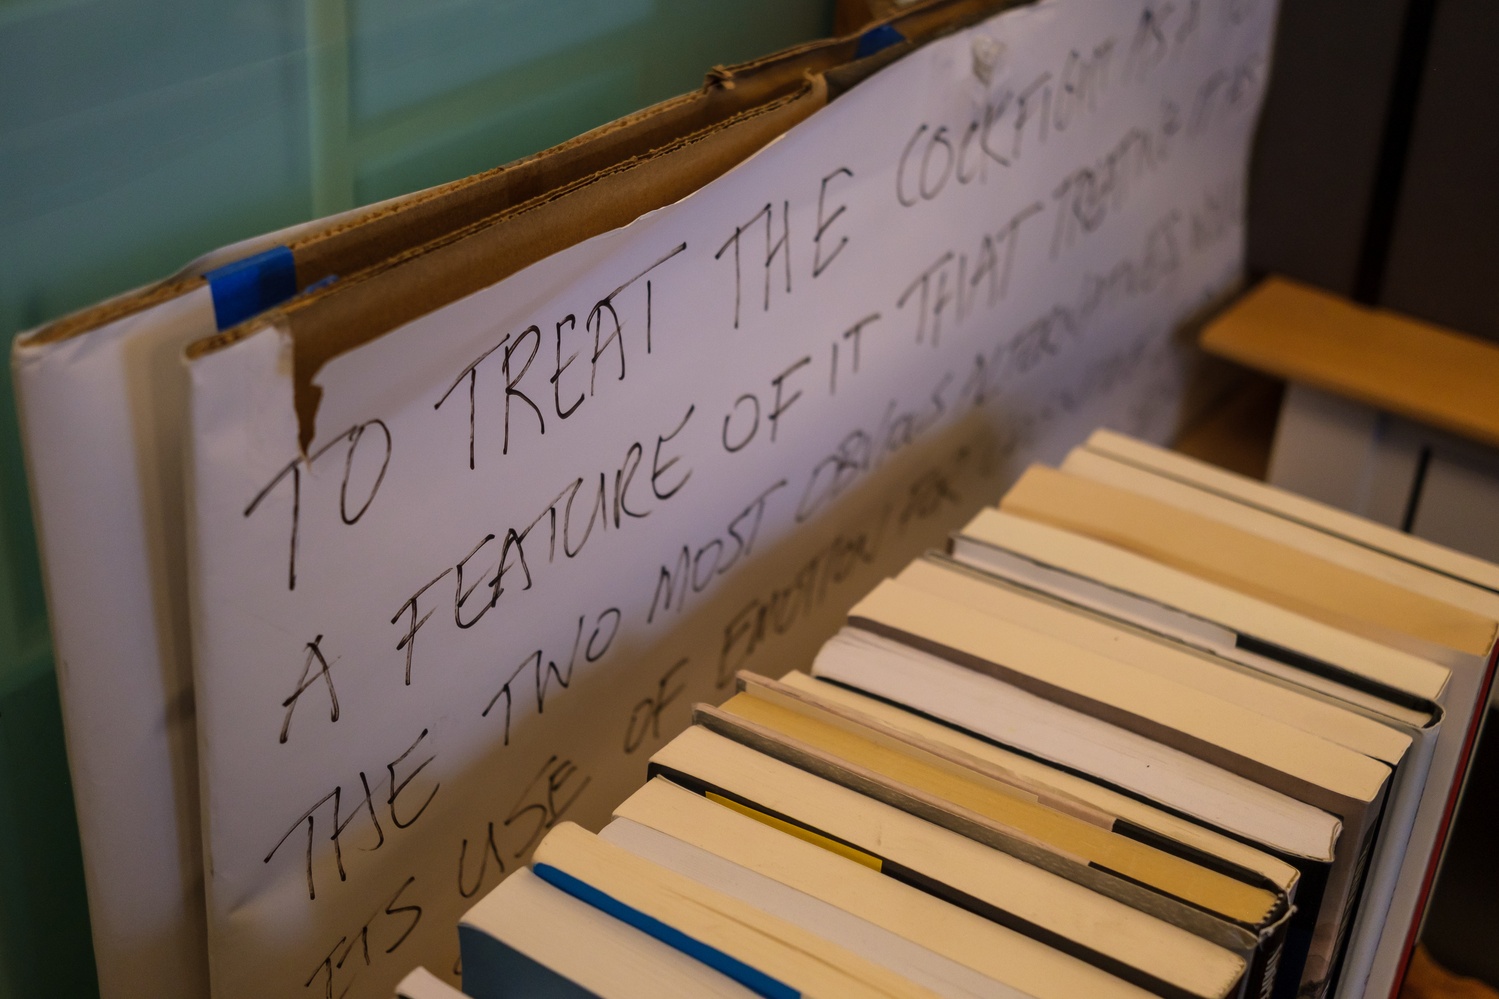 TO TREAT THE COCKFIGHT AS A
A FEATURE OF IT THAT TREATING IT AS
THE TWO MOST OBVIOUS ALTERNATIVES
ITS USE OF EMOTION FOR